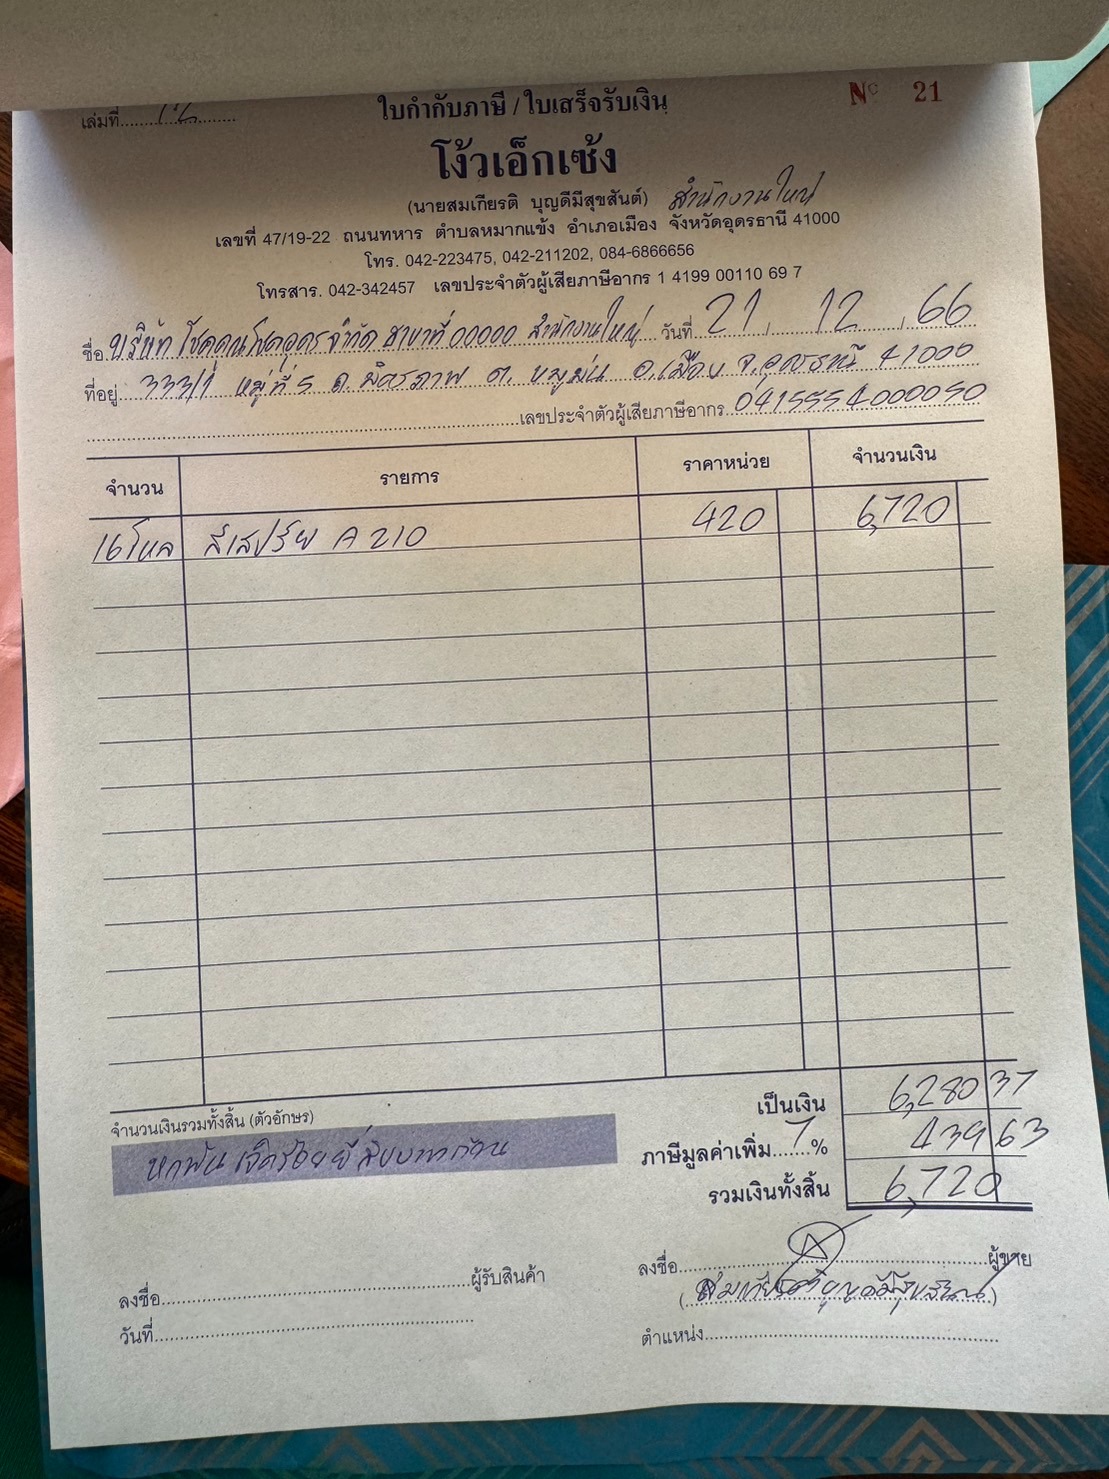 เล่มที่ 12 ใบกำกับภาษี / ใบเสร็จรับเงิน Nº 21
โง้วเอ็กเซ้ง
(นายสมเกียรติ บุญดีมีสุขสันต์) สำนักงานใหญ่
เลขที่ 47/19-22 ถนนทหาร ตำบลหมากแข้ง อำเภอเมือง จังหวัดอุดรธานี 41000
โทร. 042-223475, 042-211202, 084-6866656
โทรสาร. 042-342457 เลขประจำตัวผู้เสียภาษีอากร 1 4199 00110 69 7
ชื่อ บริษัท โชคคูณโชคอุดร จำกัด สาขาที่ 00000 สำนักงานใหญ่ วันที่ 21, 12, 66
ที่อยู่ 333/1 หมู่ที่ 5 ถ.มิตรภาพ ต. อ.เมือง จ.อุดรธานี 41000
เลขประจำตัวผู้เสียภาษีอากร 0415554000050
จำนวน รายการ ราคาหน่วย จำนวนเงิน
16โหล สีสเปรย์ A 210 420 6,720
เป็นเงิน 6,280 37
จำนวนเงินรวมทั้งสิ้น (ตัวอักษร)
หกพันเจ็ดร้อยยี่สิบบาทถ้วน
ภาษีมูลค่าเพิ่ม 7 % 439 63
รวมเงินทั้งสิ้น 6,720
ลงชื่อ ผู้รับสินค้า ลงชื่อ ผู้ขาย
(สมเกียรติ บุญดีมีสุขสันต์)
วันที่ ตำแหน่ง